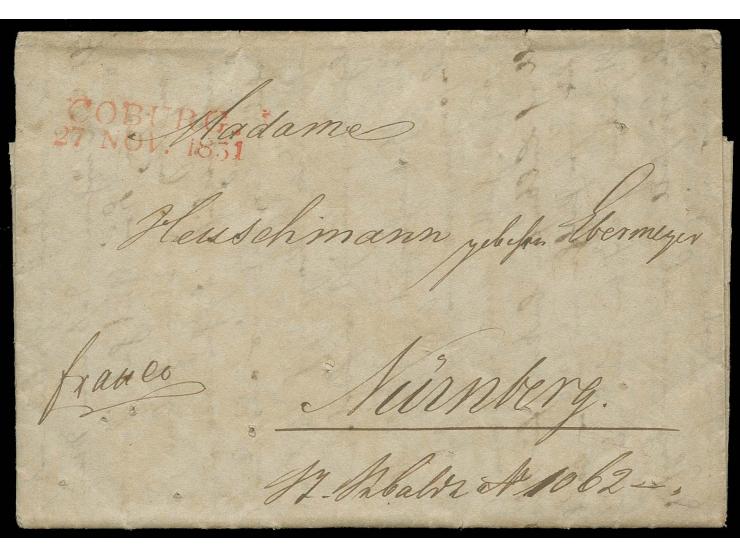 COBURG.
27 NOV. 1831
Madame
Heuschmann gebohrn Ebermeyer
franco
Nürnberg.
St. Sebalds № 1062